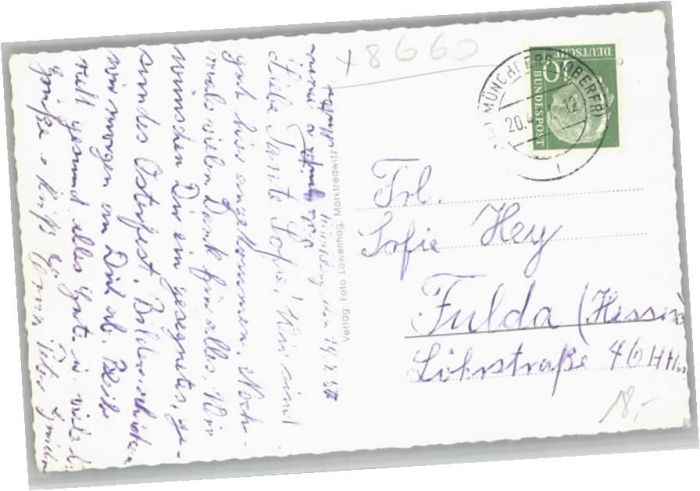 Münchberg, den 19.4.57
Liebe Tante Sofie! Wir sind
gut hier angekommen. Noch-
mals vielen Dank für alles. Wir
wünschen Dir ein gesegnetes, ge-
sundes Osterfest. Bilder schicken
wir morgen an Dich ab. Bleib
recht gesund alles Gute u. viele
Grüße u. Küsse Peter
Verlag Foto Löwenhag, Marktredwitz
+8660
MÜNCHBERG (OBERFR)
20.4.
-12
10
DEUTSCHE
BUNDESPOST
Frl.
Sofie Hey
Fulda (Hessen)
Löhrstraße 46
18,-